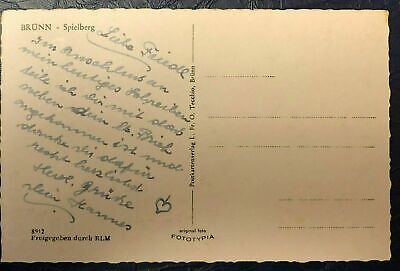 BRÜNN - Spielberg
Liebe Friedl
Im Anschluss an
mein heutiges Schreiben
teile ich dir mit dass
neben dem Brief
angekommen ist und
danke dir dafür
recht herzlichst
Herzl. Grüße
dein Hannes
8912
Freigegeben durch RLM
original foto
FOTOTYPIA
Postkartenverlag L. Fr. O. Teschau, Brünn